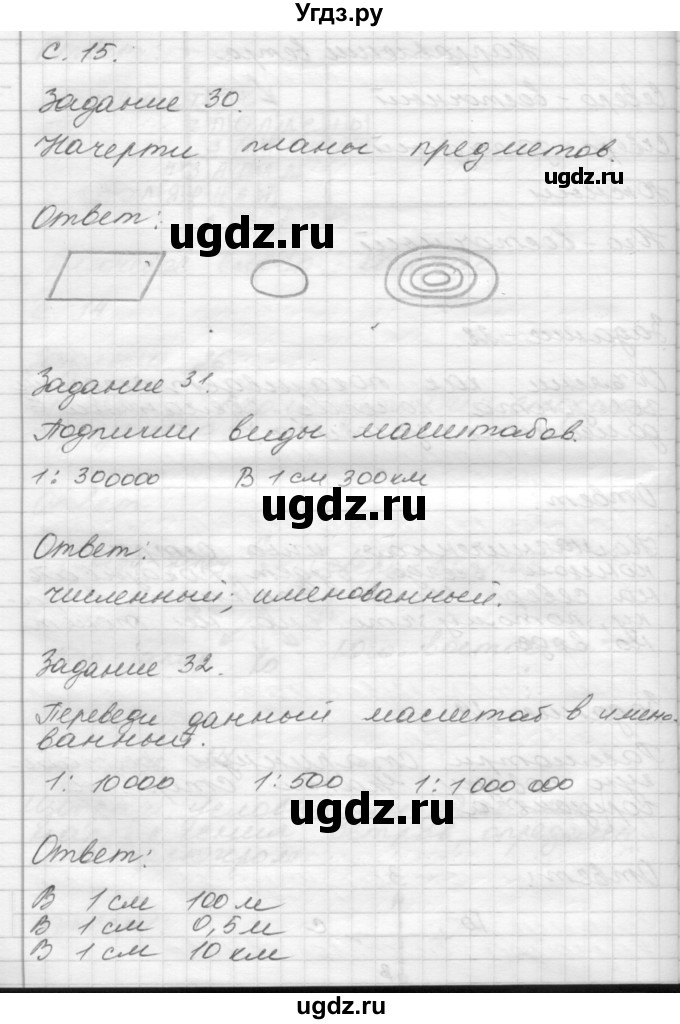 Угдз.ру
С. 15.
Задание 30.
Начерти планы предметов.
ugdz.ru
Ответ:
ugdz.ru
Задание 31.
Подпиши виды масштабов.
1: 300000 В 1 см 300 км
ugdz.ru
Ответ:
численный; именованный.
Задание 32.
Переведи данный масштаб в имено-
ванный.
1: 10000 1: 500 1: 1 000 000
ugdz.ru
Ответ:
В 1 см 100 м
В 1 см 0,5 м
В 1 см 10 км
ugdz.ru